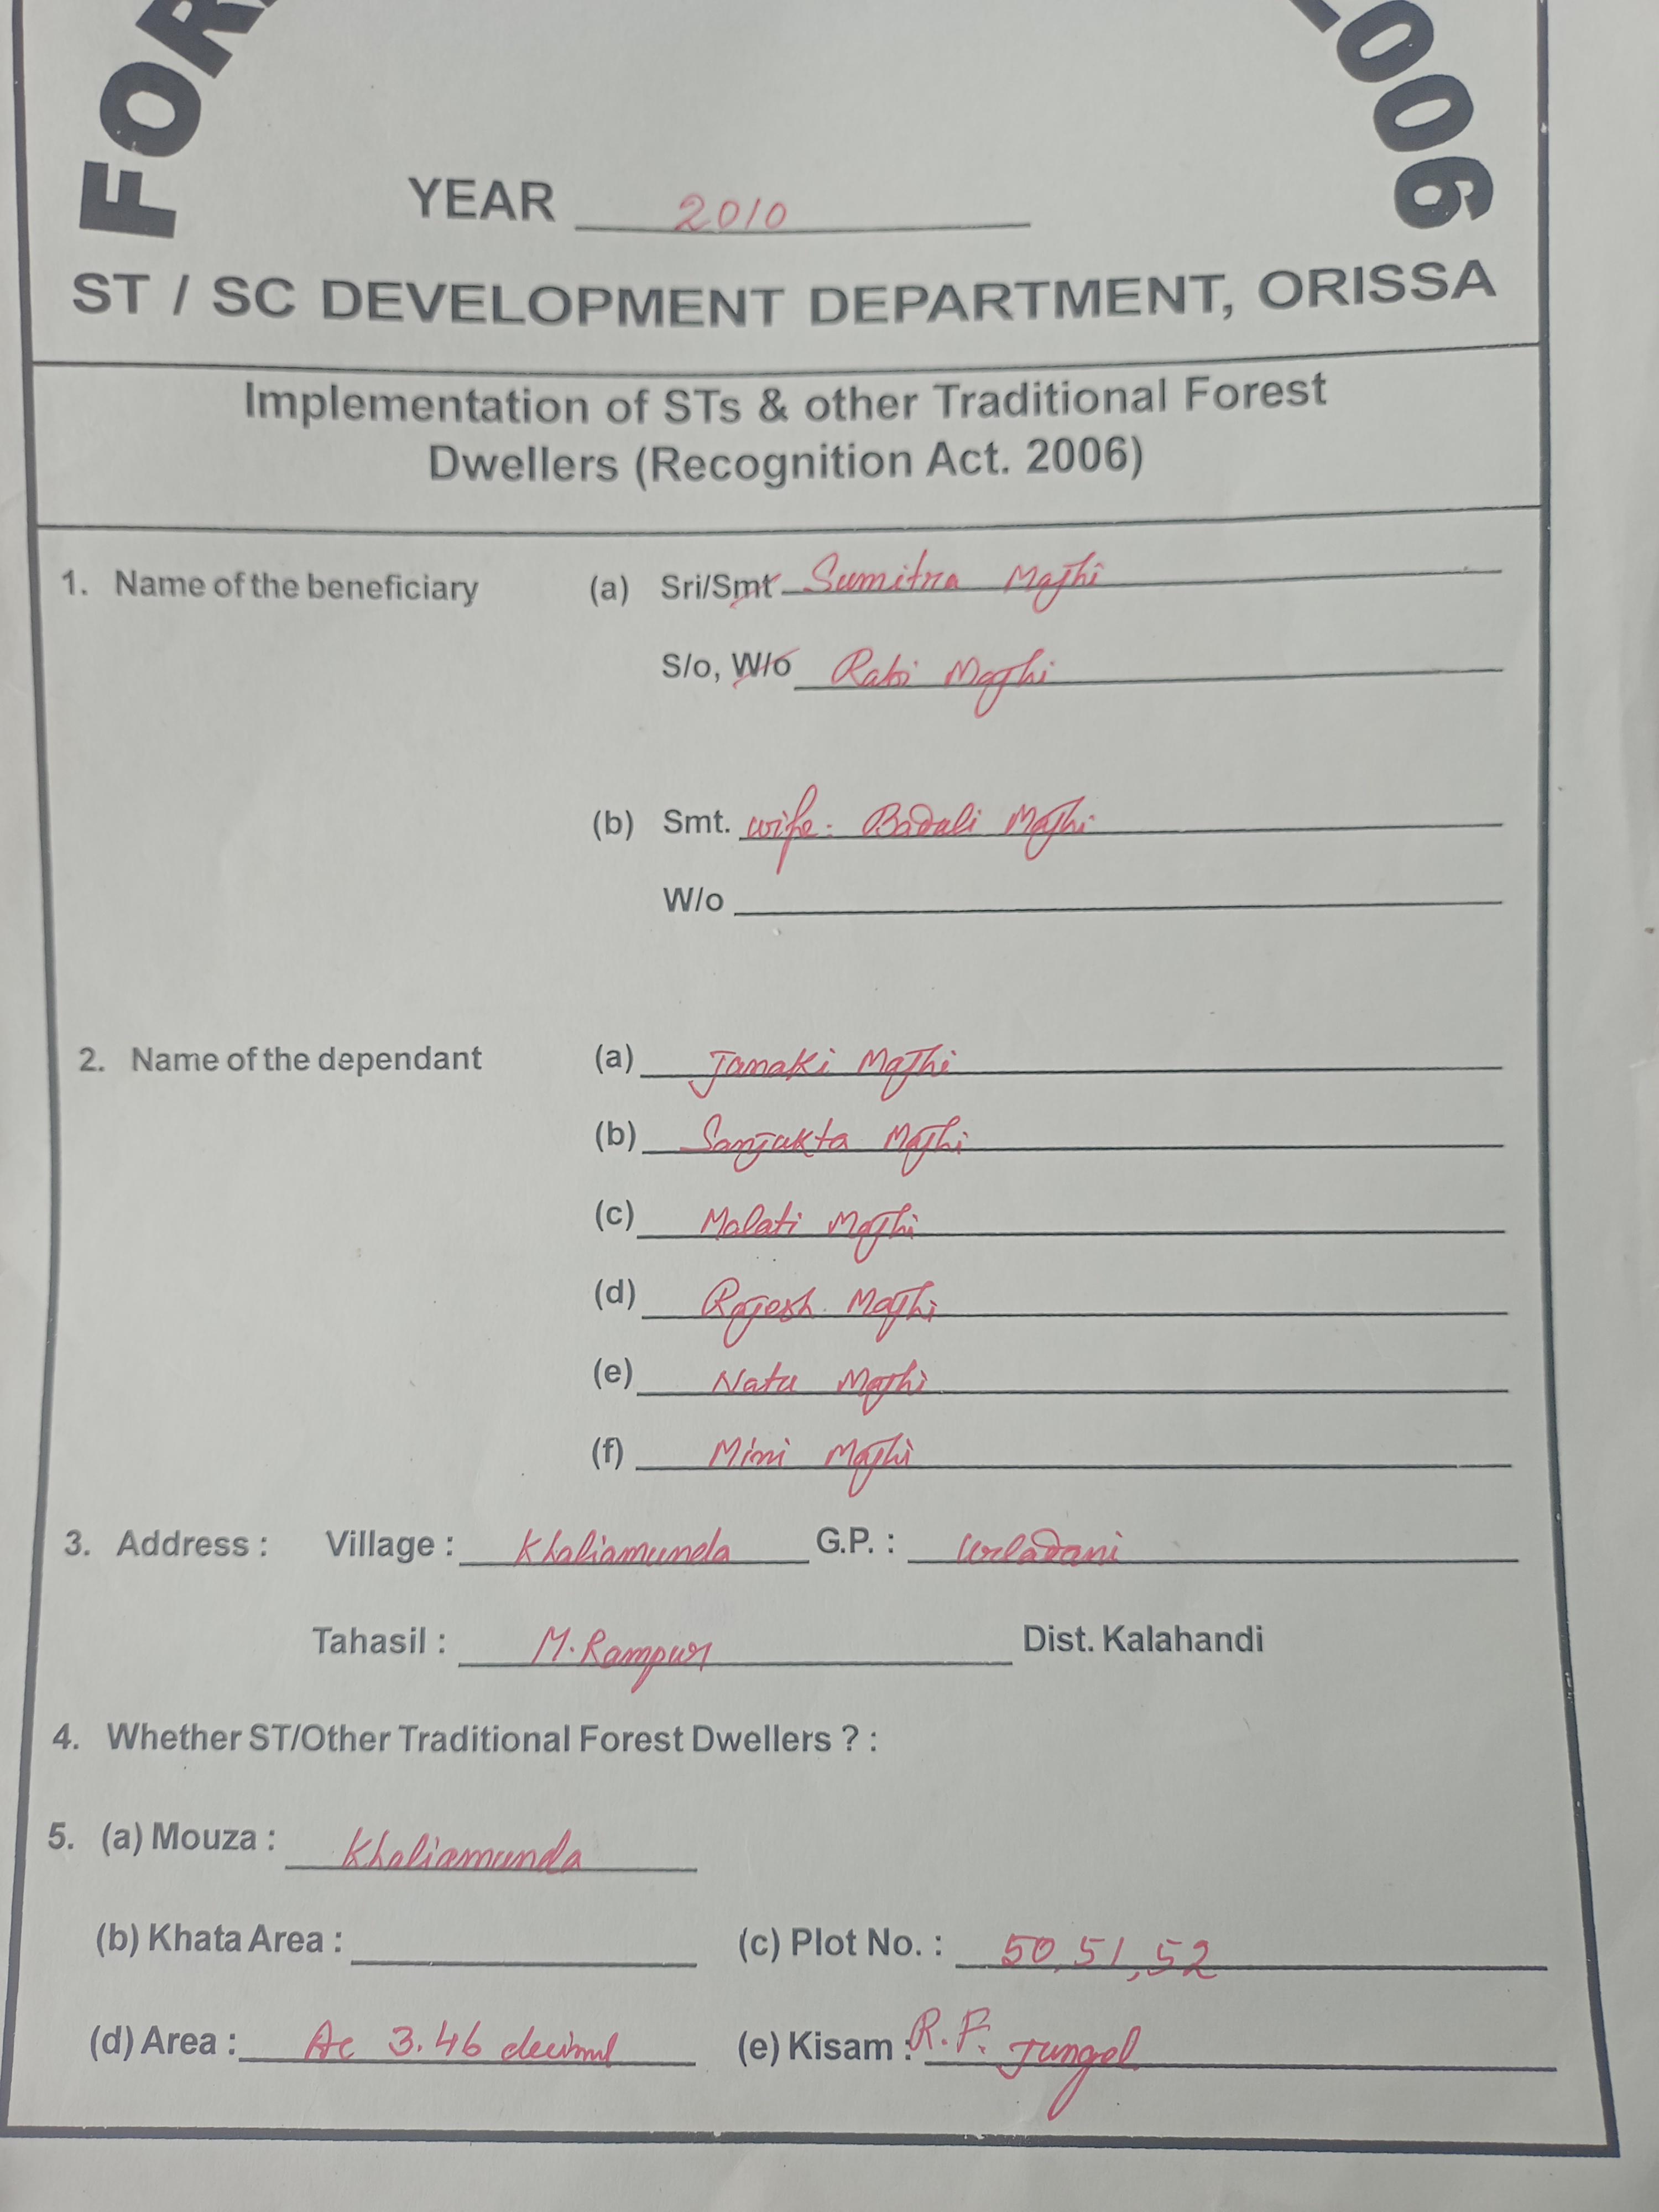 FOR
2006
YEAR 2010
ST / SC DEVELOPMENT DEPARTMENT, ORISSA
Implementation of STs & other Traditional Forest
Dwellers (Recognition Act. 2006)
1. Name of the beneficiary (a) Sri/Smt Sumitra Majhi
S/o, W/o Rabi Majhi
(b) Smt. wife: Badali Majhi
W/o
2. Name of the dependant (a) Janaki Majhi
(b) Sanjukta Majhi
(c) Malati Majhi
(d) Rajesh Majhi
(e) Natu Majhi
(f) Mini Majhi
3. Address : Village : Khaliamunda G.P. : Urladani
Tahasil : M. Rampur Dist. Kalahandi
4. Whether ST/Other Traditional Forest Dwellers ? :
5. (a) Mouza : Khaliamunda
(b) Khata Area : (c) Plot No. : 50, 51, 52
(d) Area : Ac 3.46 decimal (e) Kisam : R.F. Jungal